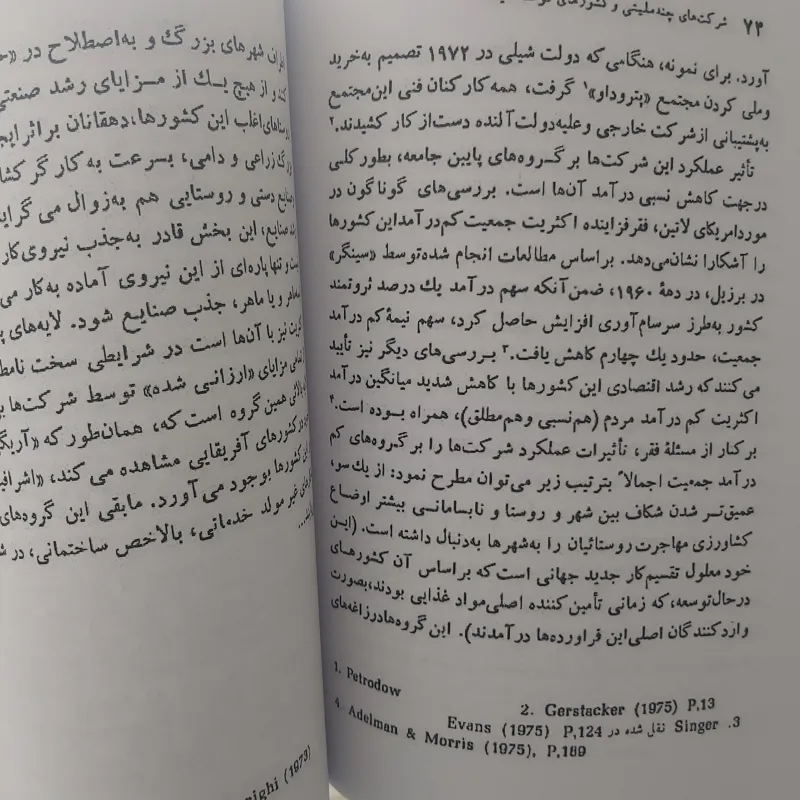 ۷۴ شرکت‌های چندملیتی و کشورهای
آورد. برای نمونه، هنگامی که دولت شیلی در ۱۹۷۲ تصمیم به‌خرید
وملی کردن مجتمع «پتروداو»۱ گرفت، همه کارکنان فنی این‌مجتمع
به‌پشتیبانی ازشرکت خارجی وعلیه‌دولت‌آلنده دست‌از کار کشیدند.۲
تأثیر عملکرد این شرکت‌ها بر گــروه‌های پایین جامعه، بطورکلی
درجهت کاهش نسبی درآمد آن‌ها است. بررسی‌های گوناگون در
موردامریکای لاتین، فقرفزاینده اکثریت جمعیت کم‌درآمداین کشورها
را آشکارا نشان‌می‌دهد. براساس مطالعات انجام شده‌توسط «سینگر»
در برزیل، در دههٔ ۱۹۶۰، ضمن‌آنکه سهم درآمد یك درصد ثروتمند
کشور به‌طرز سرسام‌آوری افزایش حاصل کرد، سهم نیمهٔ کم درآمد
جمعیت، حدود یك چهارم کاهش یافت.۳ بــررسی‌های دیگر نیز تأیید
می‌کنندکه رشد اقتصادی این کشورها با کاهش شدید میانگین درآمد
اکثریت کم درآمد مردم (هم‌نسبی وهم‌مطلق)، همراه بــوده است.۴
برکنار از مسئلهٔ فقر، تأثیرات عملکرد شرکت‌ها را بر گــروه‌های کم
درآمد جمعیت اجمالاً بترتیب زیر می‌توان مطرح نمود: از یك‌سو،
عمیق‌تــر شدن شکاف بین شهر و روستا و نابسامانــی بیشتر اوضاع
کشاورزی مهاجرت روستائیان را به‌شهرها به‌دنبال داشته است. (ایــن
خود معلول تقسیم‌کار جدید جهانی است‌که براساس آن کشورهــای
درحال‌توسعه،که زمانی تأمین‌کننده اصلی‌مواد غذایی بودند،بصورت
واردکنندگان اصلی‌این فراورده‌ها درآمدند). این گروه‌هادرزاغه‌های
1. Petrodow
2. Gerstacker (1975) P.13
3. Singer نقل شده در Evans (1975) P,124
4. Adelman & Morris (1975), P,189
شهرهای بزرگ و به‌اصطلاح در
از هیچ یــك از مــزایای رشد صنعتی
اغلب این کشورها،دهقانان براثر
زراعی و دامی، بسرعت به کارگر
دستی و روستایی هم به‌زوال می
صنایع، این بخش قادر به‌جذب نیروی‌کار
و تنها پاره‌ای از این نیروی آماده به‌کار
و یا ماهر، جذب صنایع شود. لایه‌های
نیز با آن‌ها است در شرایطی سخت
مزایای «ارزانــی شده» توسط شرکت‌ها
همین گروه است که، همان‌طور که
کشورهای آفریقایی مشاهده می کند،
کشورها بوجود می‌آورد. مابقی این گروه‌های
غیر مولد خدماتی، بالاخص ساختمانی، در
(1973)